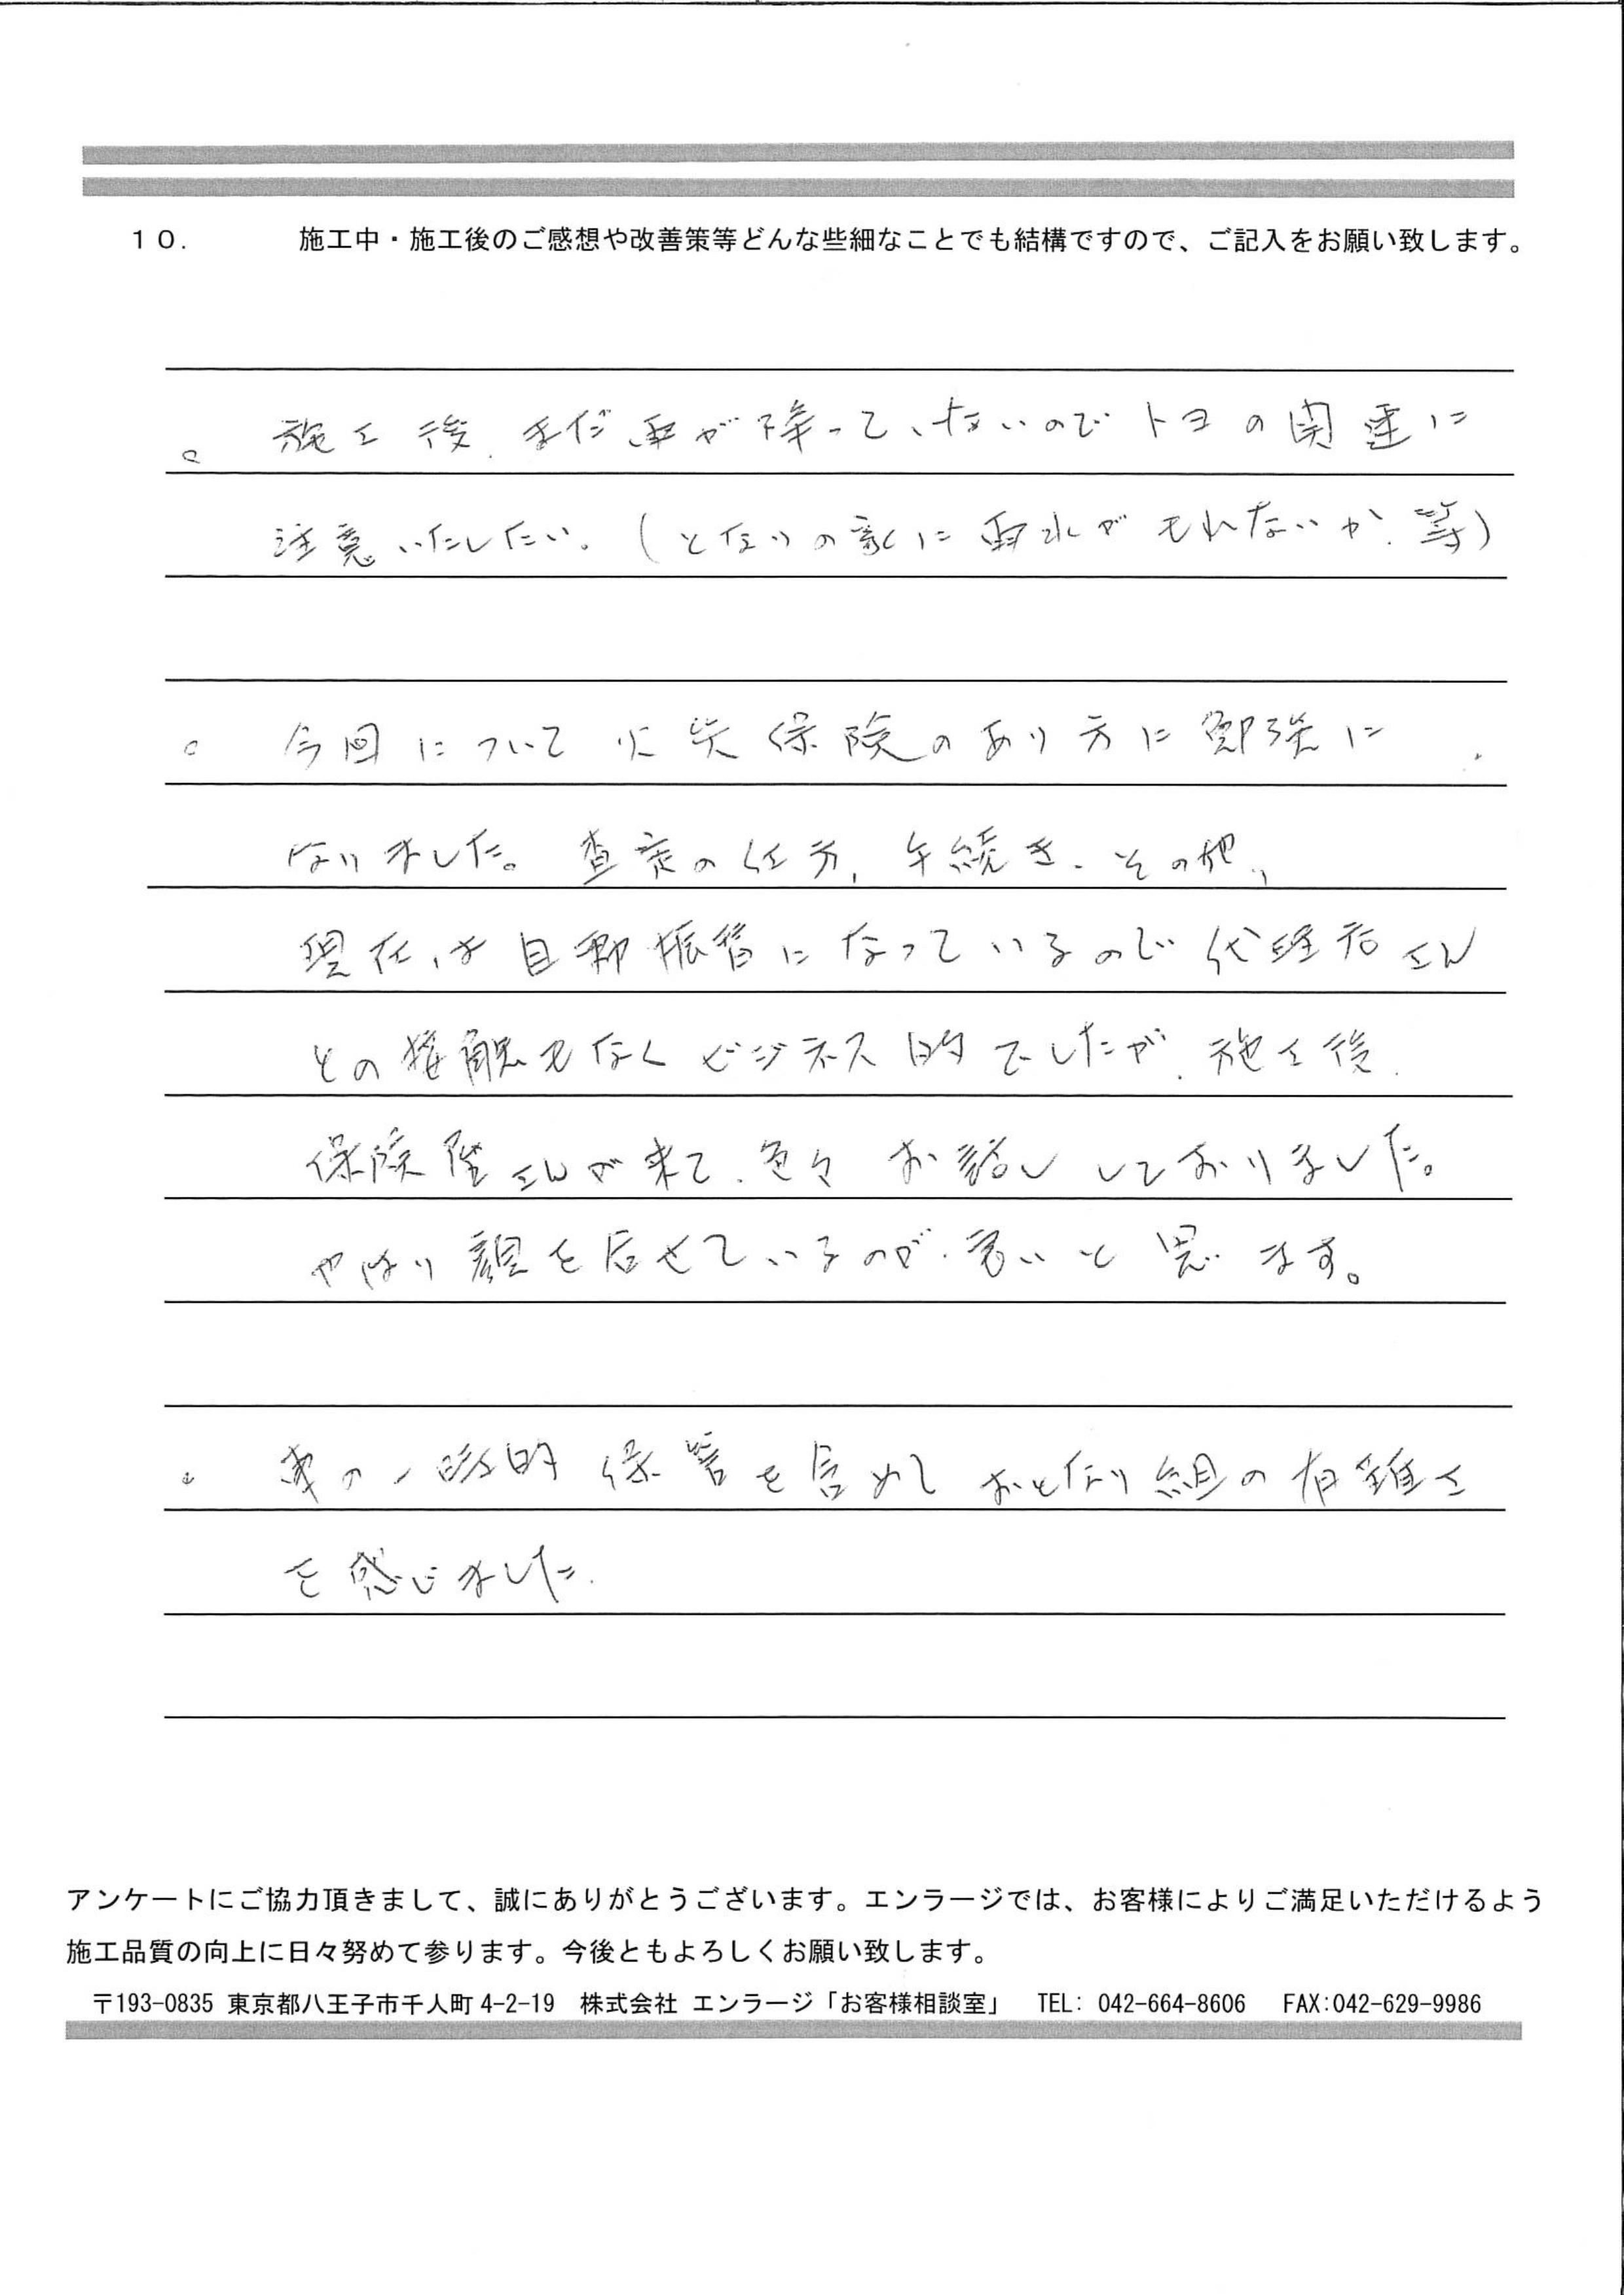 10. 施工中・施工後のご感想や改善策等どんな些細なことでも結構ですので、ご記入をお願い致します。
。 施工後、まだ雨が降っていないのでトヨの関連に
注意いたしたい。(となりの家に雨水がもれないか、等)
。 今回について火災保険のあり方に勉強に
なりました。査定の仕方、手続き、その他、
現在は自動振替になっているので代理店さん
との接触もなくビジネス的でしたが、施工後、
保険屋さんが来て、色々お話ししておりました。
やはり顔を合せているのが、良いと思います。
。 車の一時的保管を含めておとなり組の有難さ
を感じました.
アンケートにご協力頂きまして、誠にありがとうございます。エンラージでは、お客様によりご満足いただけるよう
施工品質の向上に日々努めて参ります。今後ともよろしくお願い致します。
〒193-0835 東京都八王子市千人町 4-2-19 株式会社 エンラージ「お客様相談室」 TEL: 042-664-8606 FAX:042-629-9986